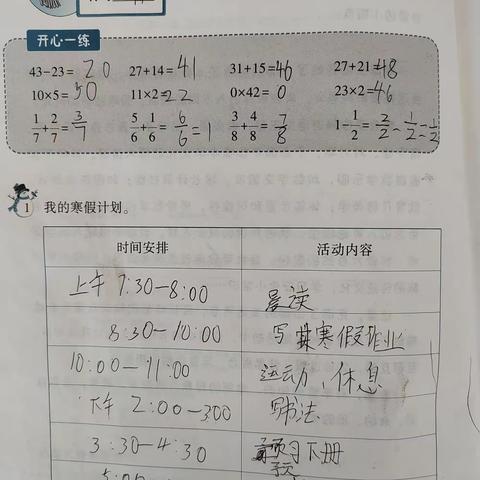 开心一练
43-23= 20 27+14= 41 31+15= 46 27+21= 48
10×5= 50 11×2= 22 0×42= 0 23×2= 46
1/7+2/7= 3/7 5/6+1/6= 6/6=1 3/8+4/8= 7/8 1-1/2= 2/2-1/2=1/2
1 我的寒假计划。
时间安排 活动内容
上午 7:30-8:00 晨读
8:30-10:00 写寒假作业
10:00-11:00 运动,休息
下午 2:00-300 写书法
3:30-4:30 预习下册